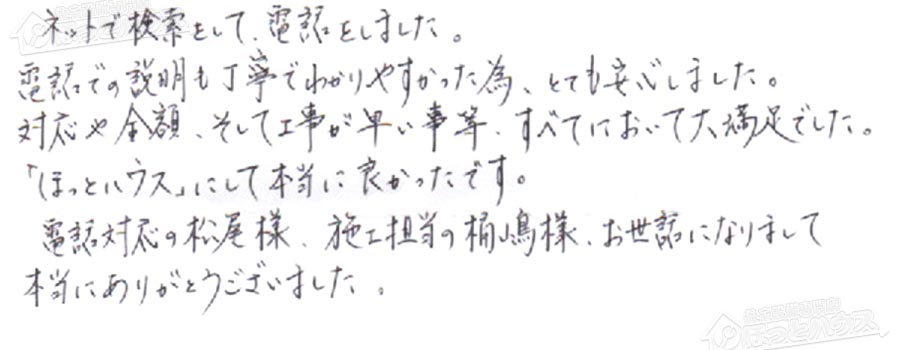 ネットで検索をして、電話をしました。
電話での説明も丁寧でわかりやすかった為、とても安心しました。
対応や金額、そして工事が早い事等、すべてにおいて大満足でした。
「ほっとハウス」にして本当に良かったです。
電話対応の松尾様、施工担当の桶嶋様、お世話になりまして
本当にありがとうございました。
ほっとハウス